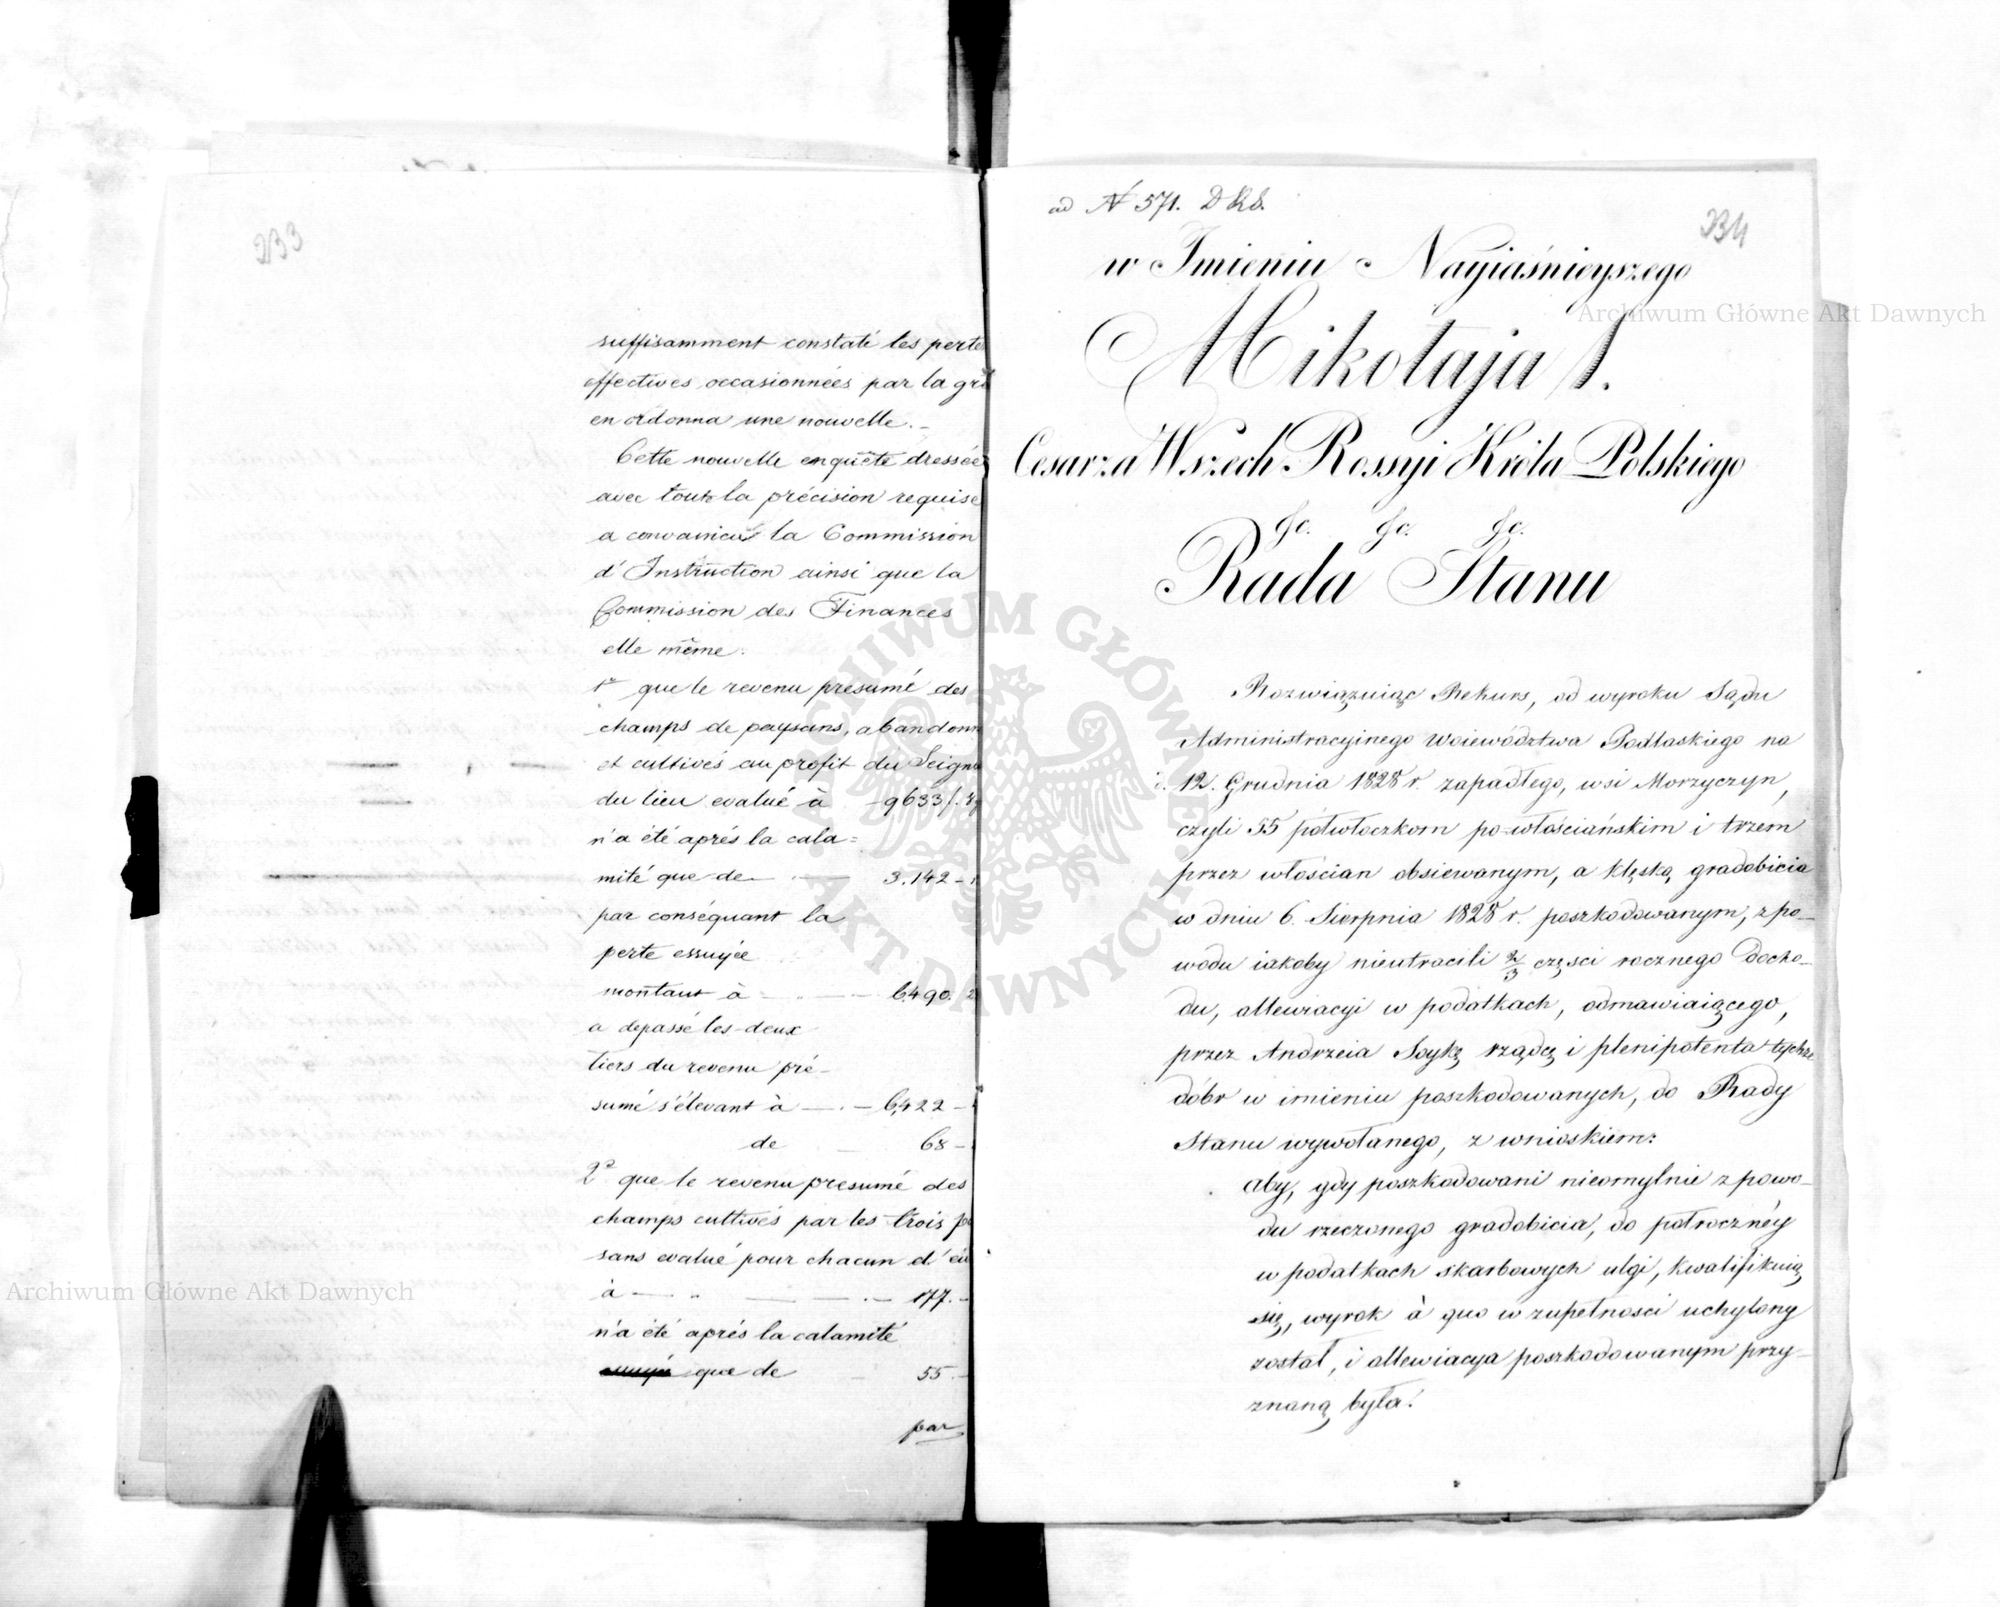 233
suffisamment constaté les perte
effectives occasionnées par la grê
en ordonna une nouvelle. –
Cette nouvelle enquête dressée
avec toute la précision requise
a convaincu la Commission
d'Instruction ainsi que la
Commission des Finances
elle même:
1º que le revenu presumé des
champs de paysans, abandonn
et cultivés au profit du Seigne
du lieu evalué à – 9633 f.
n'a été aprés la cala=
mité que de — 3.142 –
par conséquant la
perte essuyée
montant à — 6,490.
a depassé les deux
tiers du revenu pré–
sumé s'élevant à — 6,422 –
de 68 –
2º que le revenu presumé des
champs cultivés par les trois pa
sans evalué pour chacun d'eu
à — 177. –
n'a été aprés la calamité
que de 55. –
par
ad № 571. D.R.S.
234
w Imieniu Nayiaśnieyszego
Mikołaja I.
Cesarza Wszech Rossyi Króla Polskiego
&c. &c. &c.
Rada Stanu
Rozwiązuiąc Rekurs, od wyroku Sądu
Administracyjnego Woiewództwa Podlaskiego na
12. Grudnia 1828 r. zapadłego, wsi Morzyczyn,
czyli 55 półwłoczkom po-włościańskim i trzem
przez włościan obsiewanym, a klęską gradobicia
w dniu 6. Sierpnia 1828 r. poszkodowanym, z po–
wodu iakoby nieutracili 2/3 częsci rocznego docho–
du, allewiacyi w podatkach, odmawiaiącego,
przez Andrzeia Soykę rządcę i plenipotenta tychże
dóbr w imieniu poszkodowanych, do Rady
Stanu wywołanego, z wnioskiem:
aby, gdy poszkodowani nieomylnie z powo–
du rzeczonego gradobicia, do półrocznéy
w podatkach skarbowych ulgi, kwalifikuią
się, wyrok à quo w zupełnosci uchylony
został, i allewiacya poszkodowanym przy–
znaną była.
Archiwum Główne Akt Dawnych
Archiwum Główne Akt Dawnych
ARCHIWUM GŁÓWNE AKT DAWNYCH